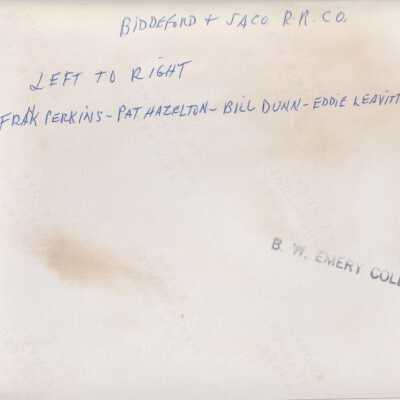 BIDDEFORD + SACO R.R. CO.
LEFT TO RIGHT
FRAK PERKINS - PAT HAZELTON - BILL DUNN - EDDIE LEAVITT
B. W. EMERY COLL